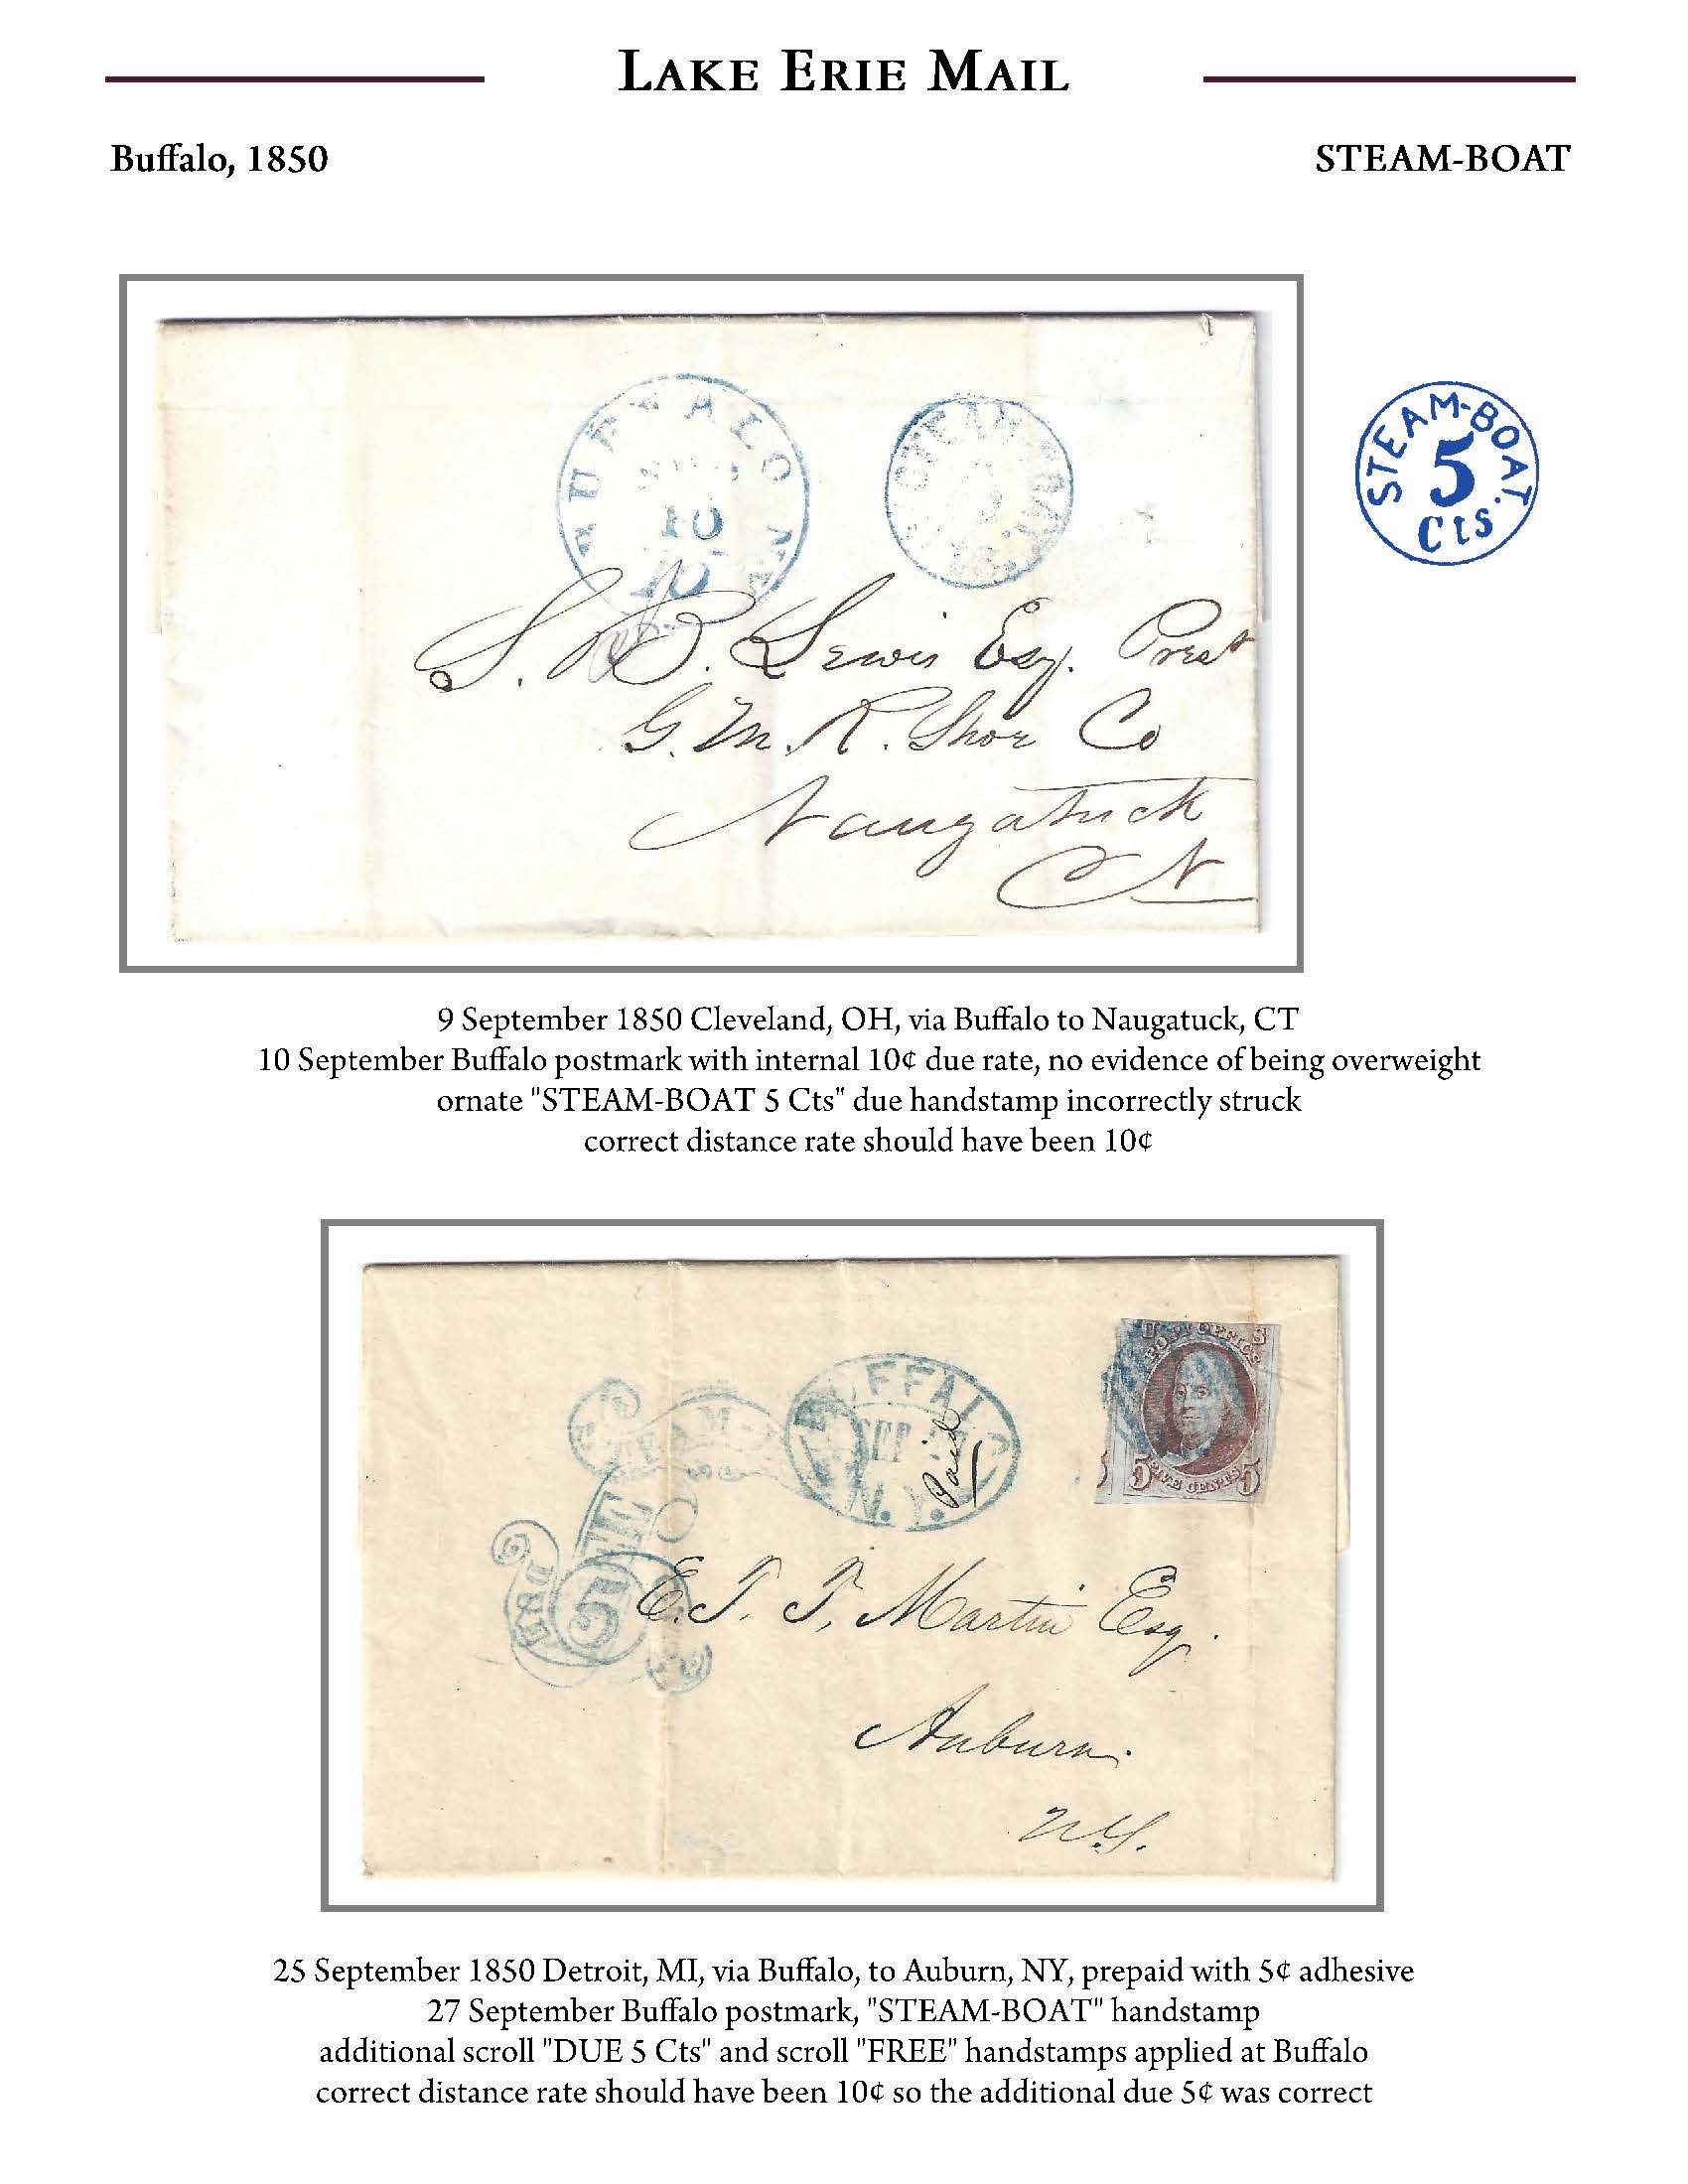 LAKE ERIE MAIL
Buffalo, 1850
STEAM-BOAT
BUFFALO N.Y.
10
10
STEAM-BOAT
STEAM-BOAT.
5
Cts
S. B. Lewis Esq. Prest
G. M. R. Shoe Co
Naugatuck
CT
9 September 1850 Cleveland, OH, via Buffalo to Naugatuck, CT
10 September Buffalo postmark with internal 10¢ due rate, no evidence of being overweight
ornate "STEAM-BOAT 5 Cts" due handstamp incorrectly struck
correct distance rate should have been 10¢
U S
POST OFFICE
5 FIVE CENTS 5
BUFFALO
SEP
N.Y.
Paid
STEAM-
DUE
5
E. T. T. Martin Esq.
Auburn.
N.Y.
25 September 1850 Detroit, MI, via Buffalo, to Auburn, NY, prepaid with 5¢ adhesive
27 September Buffalo postmark, "STEAM-BOAT" handstamp
additional scroll "DUE 5 Cts" and scroll "FREE" handstamps applied at Buffalo
correct distance rate should have been 10¢ so the additional due 5¢ was correct